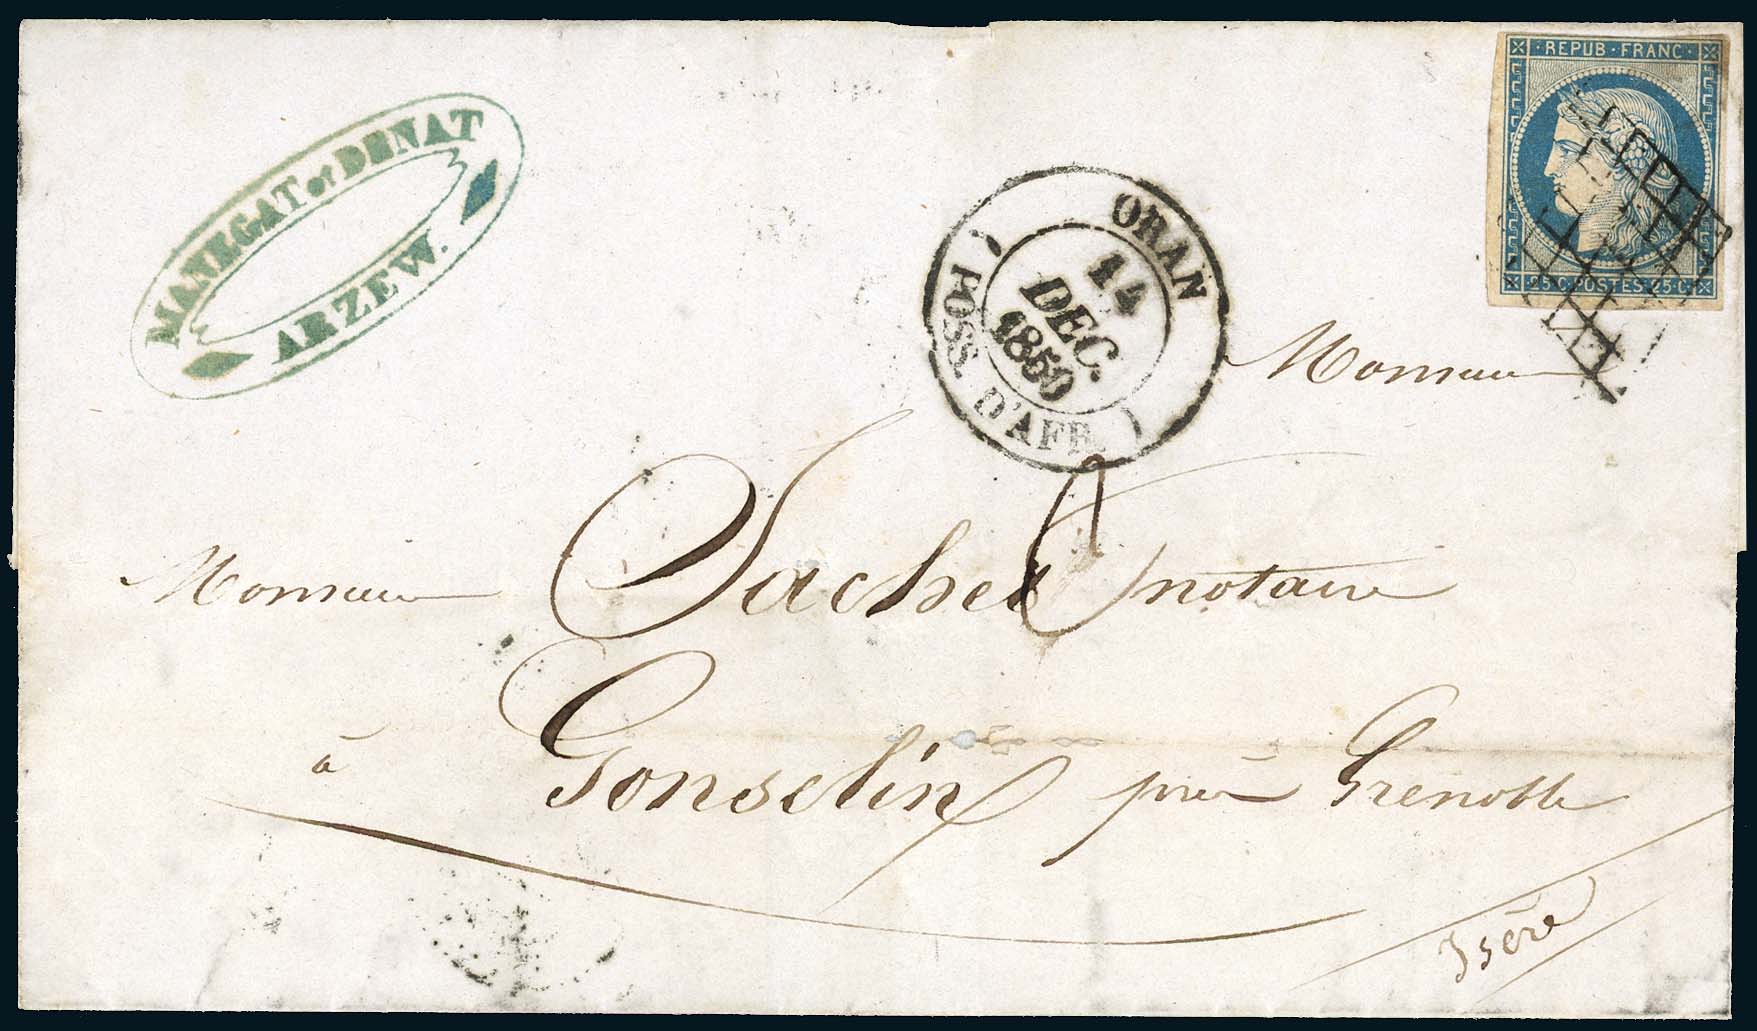 REPUB·FRANC
25·C·POSTES·25·C
MANEGAT et DENAT
ARZEW.
ORAN
14
DEC.
1850
(POSS. D'AFR.)
Monsieur
Monsieur Sachet notaire
à Gonselin près Grenoble
Isère